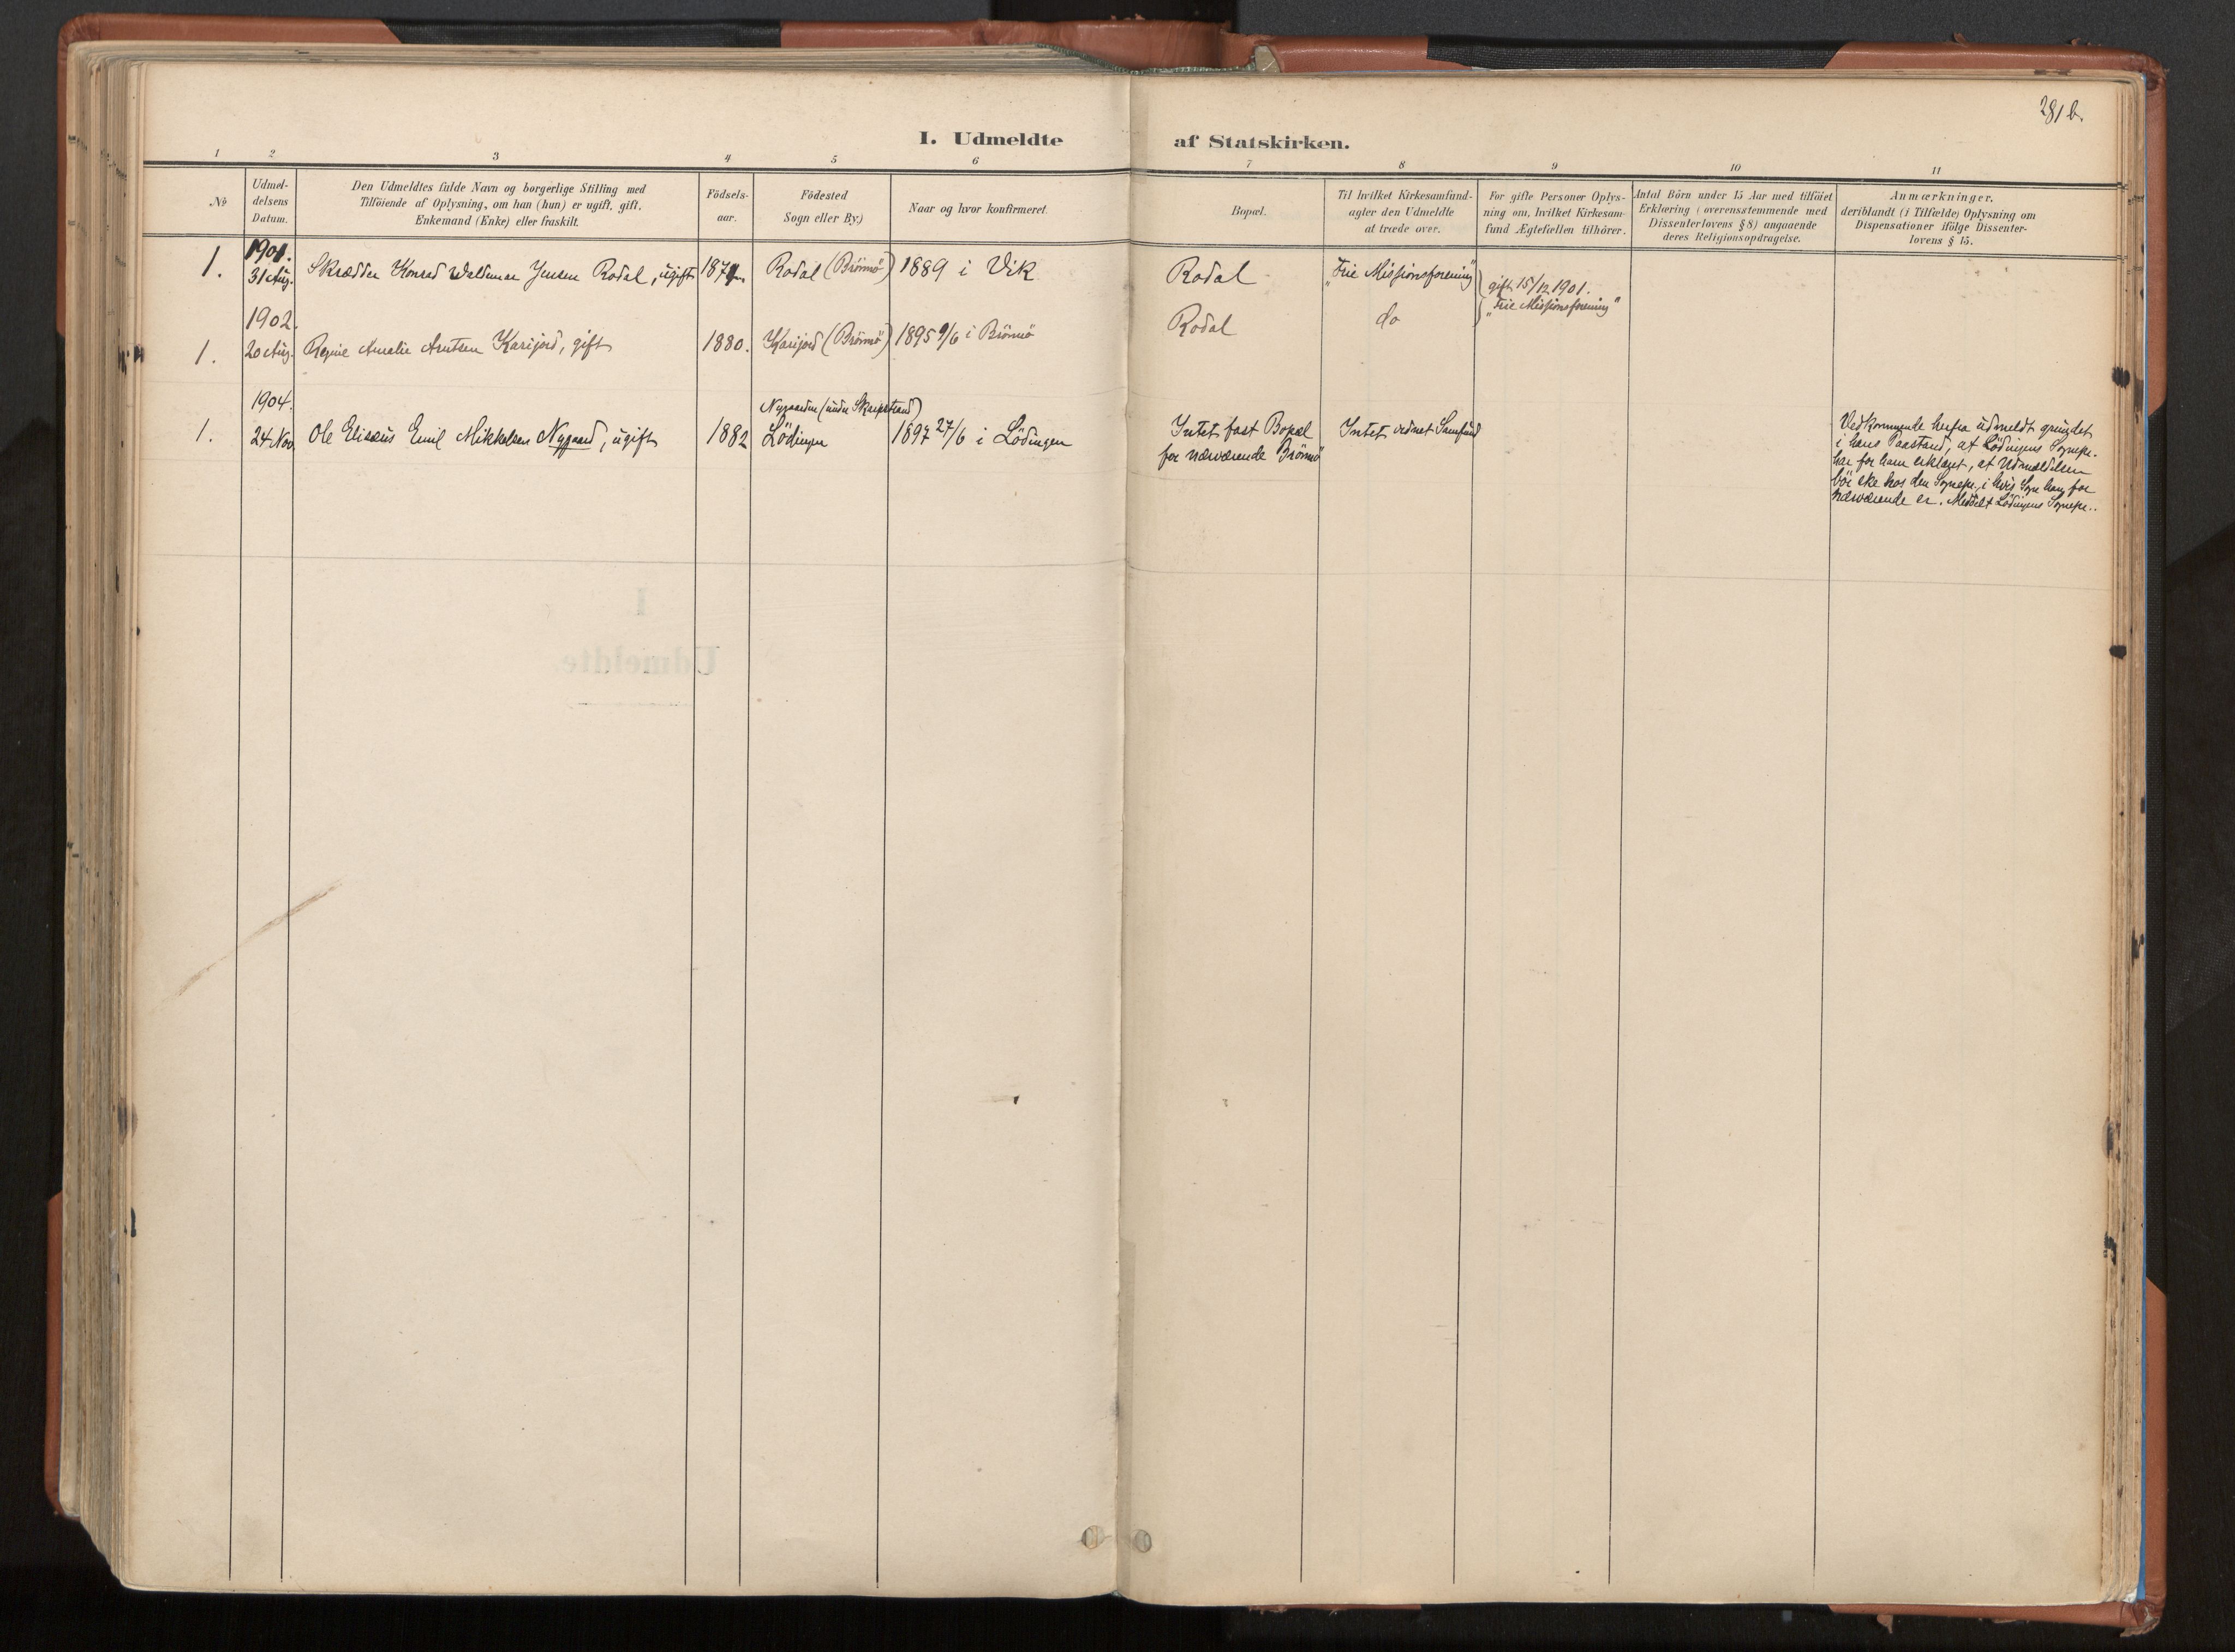 281 b.
I. Udmeldte af Statskirken.
1 2 3 4 5 6 7 8 9 10 11
No
Udmel-
delsens
Datum.
Den Udmeldtes fulde Navn og borgerlige Stilling med
Tilföiende af Oplysning, om han (hun) er ugift, gift,
Enkemand (Enke) eller fraskilt.
Födsels-
aar.
Födested
Sogn eller By.)
Naar og hvor konfirmeret.
Bopæl.
Til hvilket Kirkesamfund
agter den Udmeldte
at træde over.
For gifte Personer Oplys-
ning om, hvilket Kirkesam-
fund Ægtefællen tilhörer.
Antal Börn under 15 Aar med tilföiet
Erklæring (overensstemmende med
Dissenterlovens § 8) angaaende
deres Religionsopdragelse.
Anmærkninger,
deriblandt (i Tilfælde) Oplysning om
Dispensationer ifölge Dissenter-
lovens § 15.
1901.
1. 31 Aug. Skrædder Konrad Waldemar Jensen Rodal, ugift Rodal (Brönnö) 1889 i Vik Rodal "Frie Missionsforening"
gift 15/12 1901.
"Frie Missionsforening"
1902.
1. 20 Aug. Regine Amalie Arntsen Karijord, gift 1880. Karijord (Brönnö) 1895 9/6 i Brönnö Rodal do
1904.
Nygaarden (under Skarpstrand)
1. 24 Nov. Ole Elisæus Emil Mikkelsen Nygaard, ugift 1882 Lödingen 1897 27/6 i Lödingen
Intet fast Bopæl
for nærværende Brönnö
Intet vednet Samfund
Vedkommende herfra udmeldt grundet
i hans Paastand, at Lödingens Sognepr.
har for ham erklæret, at Udmeldelsen
bör ske hos den Sognepr., i hvis Sogn han for
nærværende er. Meddelt Lödingens Sognepr..
I
Udmeldte.